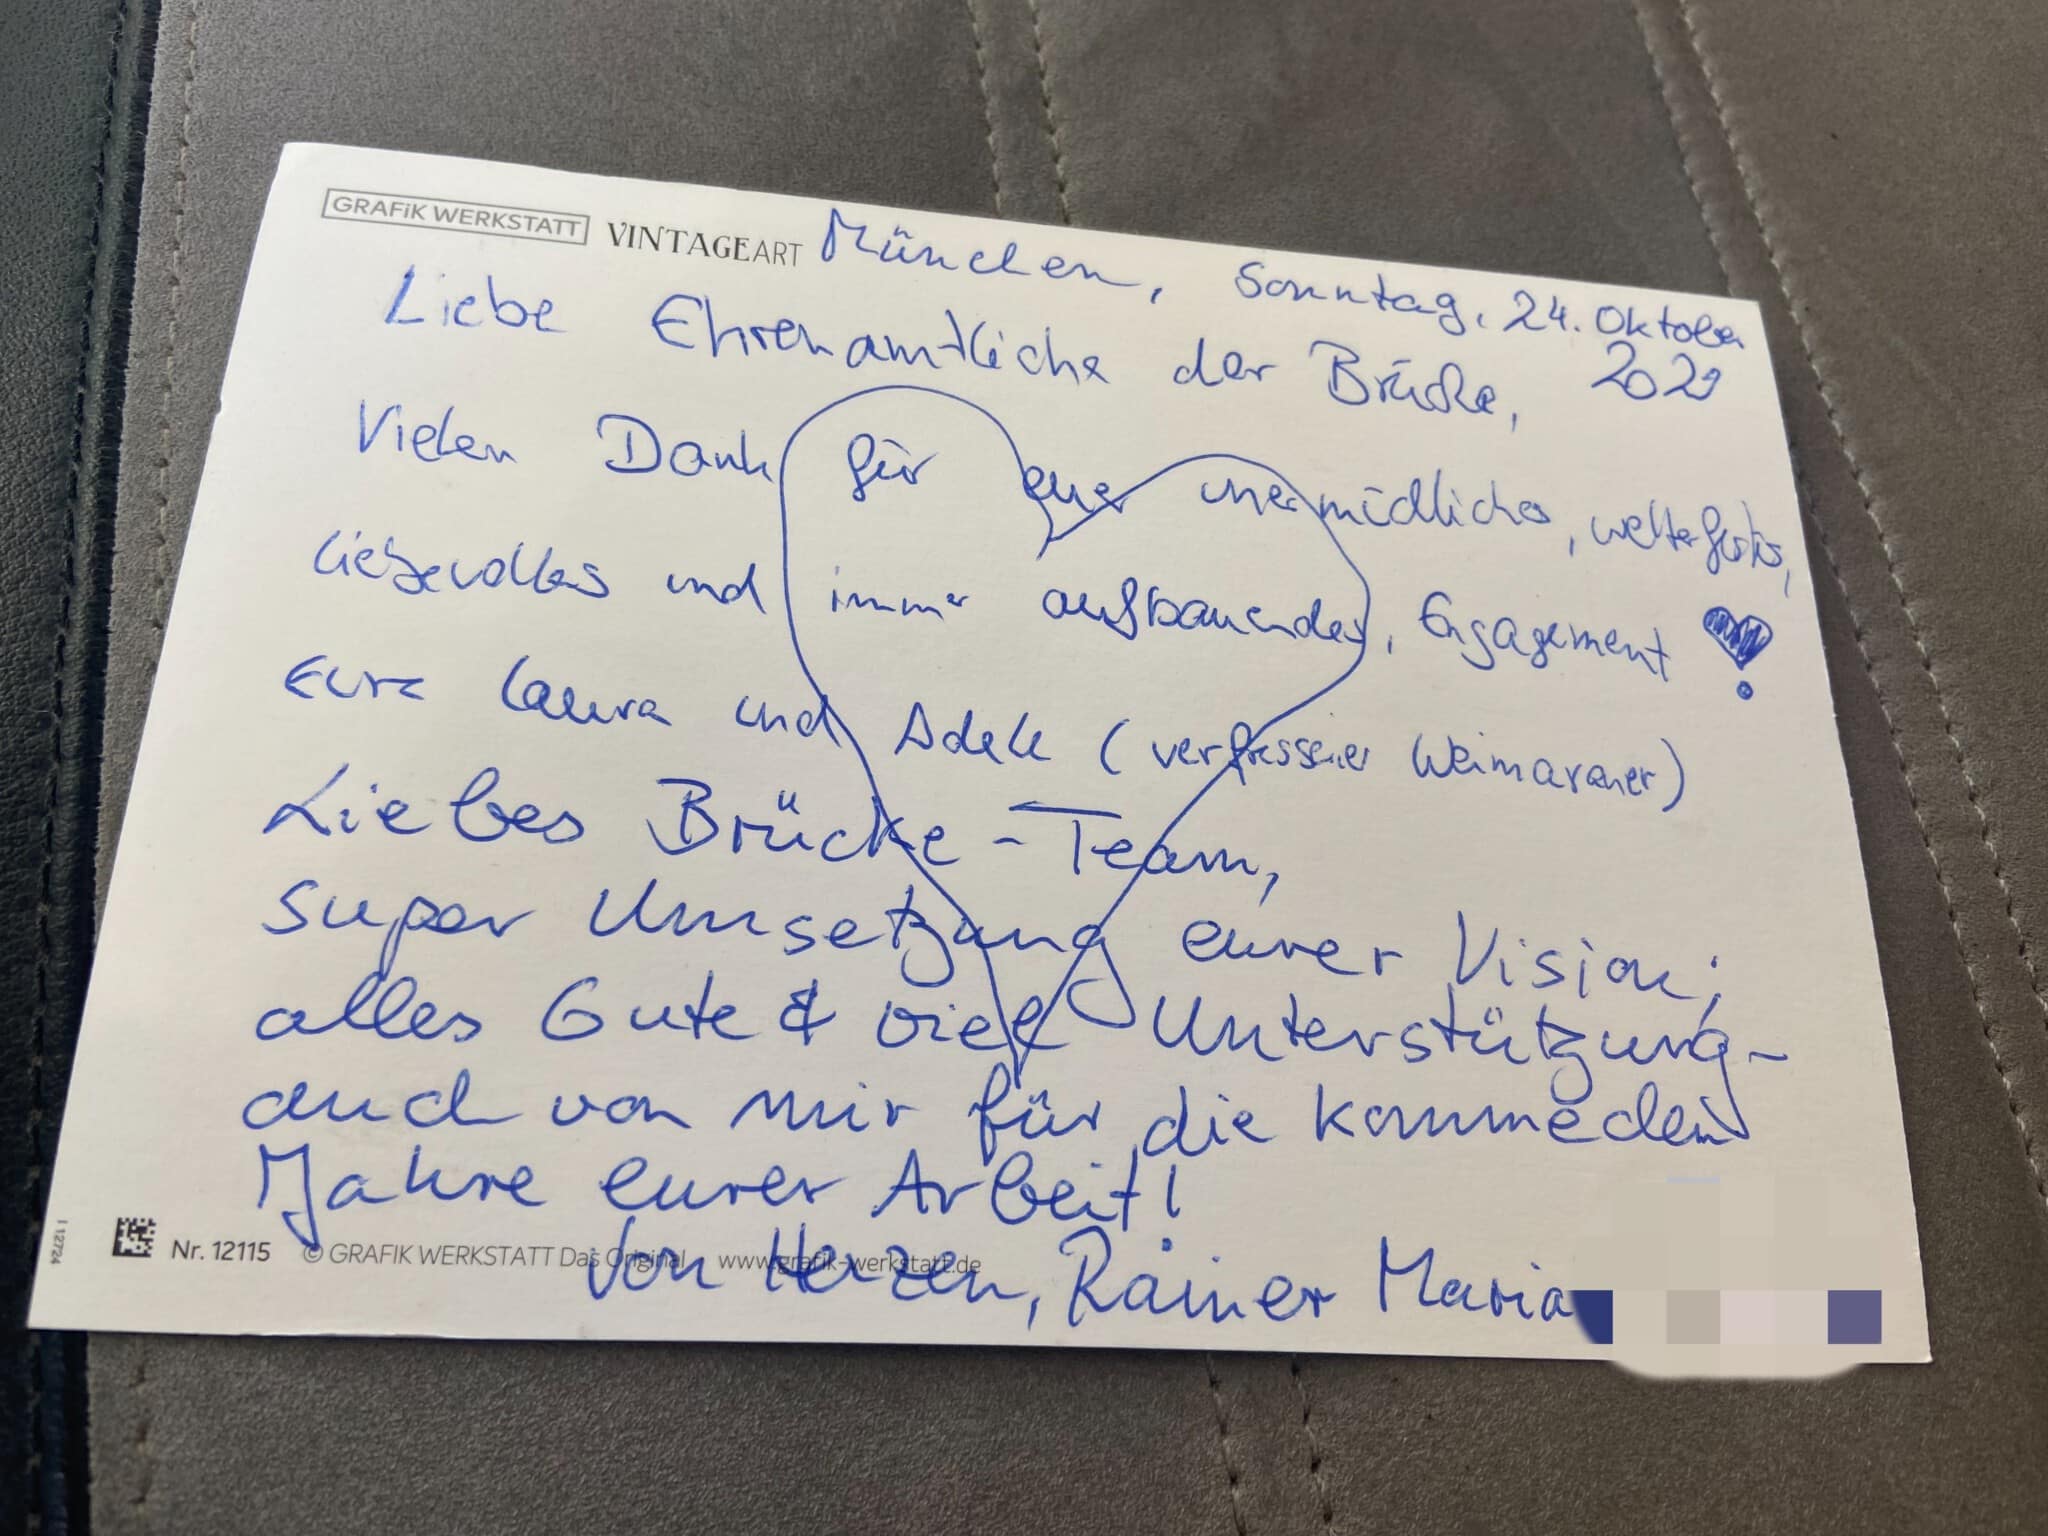 GRAFIK WERKSTATT VINTAGEART München, Sonntag, 24. Oktober
Liebe Ehrenamtliche der Brücke,
Vielen Dank für euer unermüdliches, wetterfestes,
liebevolles und immer aufbauendes, Engagement
Eure Laura und Adele (verfressener Weimaraner)
Liebes Brücke-Team,
super Umsetzung eurer Vision;
alles Gute & viel Unterstützung-
auch von mir für die kommeden
Jahre eurer Arbeit!
Von Herzen, Rainer Maria
Nr. 12115 © GRAFIK WERKSTATT Das Original www.grafik-werkstatt.de